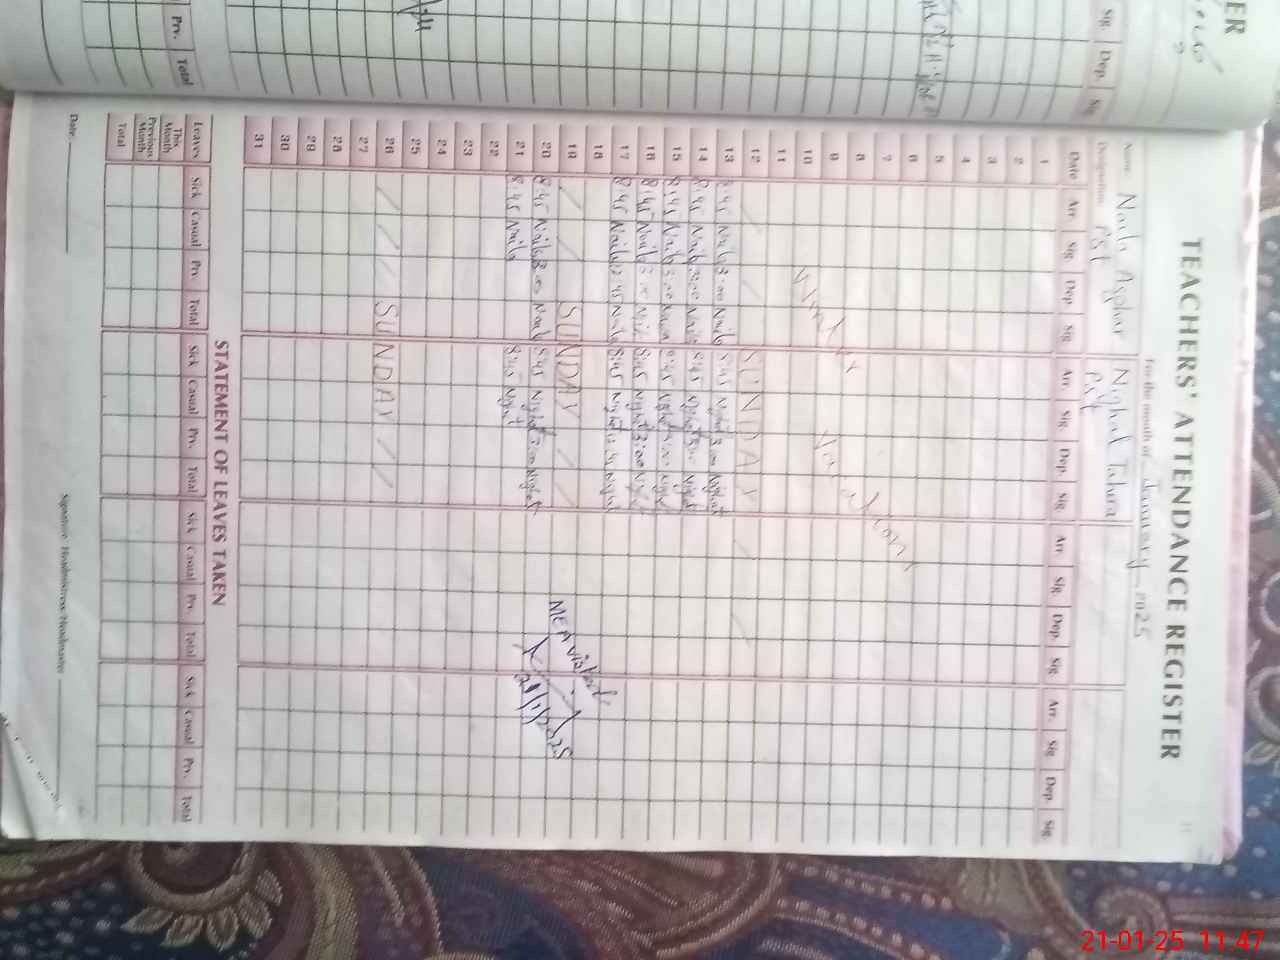 TEACHERS' ATTENDANCE REGISTER
For the month of January 2025
Name Naila Asghar Nighat Tahira
Designation PST PST
Date Arr. Sig. Dep. Sig. Arr. Sig. Dep. Sig. Arr. Sig. Dep. Sig. Arr. Sig. Dep. Sig.
1
2
3
4
5
6
7
8
9
10
11
Winter Vacation
12 SUNDAY
13 8:45 Naila 3:00 Naila 8:45 Nighat 3:00 Nighat
14 8:45 Naila 3:00 Naila 8:45 Nighat 3:00 Nighat
15 8:45 Naila 3:00 Naila 8:45 Nighat 3:00 Nighat
16 8:45 Naila 3:00 Naila 8:45 Nighat 3:00 Nighat
17 8:45 Naila 12:45 Naila 8:45 Nighat 12:45 Nighat
18
19 SUNDAY
20 8:45 Naila 3:00 Naila 8:45 Nighat 3:00 Nighat
21 8:45 Naila 8:45 Nighat
MEA visited
21/1/2025
22
23
24
25
26 SUNDAY
27
28
29
30
31
STATEMENT OF LEAVES TAKEN
Leaves Sick Casual Prv. Total Sick Casual Prv. Total Sick Casual Prv. Total Sick Casual Prv. Total
This Month
Previous Month
Total
Date
Signature Headmistress/Headmaster
ER
Sig. Dep. Sig.
Prv. Total
21-01-25 11:47